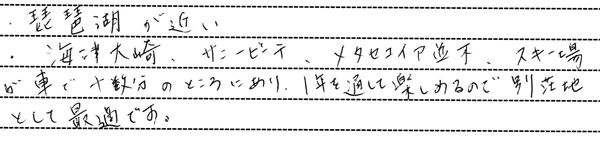 ・琵琶湖が近い
・海津大崎、サニービーチ、メタセコイア並木、スキー場
が車で十数分のところにあり、1年を通して楽しめるので別荘地
として最適です。